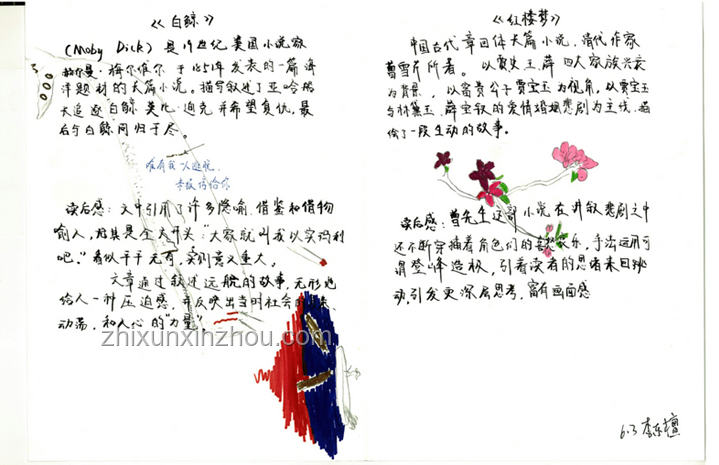 《白鲸》
(Moby Dick) 是19世纪美国小说家
赫尔曼·梅尔维尔于1851年发表的一篇海
洋题材的长篇小说。描写叙述了亚哈船
长追逐白鲸莫比·迪克并希望复仇,最
后与白鲸同归于尽。
唯有我一人逃脱,
来报信给你
读后感:文中引用了许多隐喻,借鉴和借物
喻人,尤其是全文开头:“大家就叫我以实玛利
吧。”看似平平无奇,实则意义重大。
文章通过叙述远航的故事,无形地
给人一种压迫感,并反映出当时社会的
动荡,和人心的“力量”
《红楼梦》
中国古代章回体长篇小说,清代作家
曹雪芹所著。以贾史王薛四大家族兴衰
为背景,以富贵公子贾宝玉为视角,以贾宝玉
与林黛玉、薛宝钗的爱情婚姻悲剧为主线,描
绘了一段生动的故事。
读后感:曹先生这部小说在讲叙悲剧之中
还不断穿插着角色们的喜怒哀乐,手法运用可
谓登峰造极,引着读者的思绪来回跳
动,引发更深层思考,富有画面感
6.3 李东
zhixunxinzhou.com